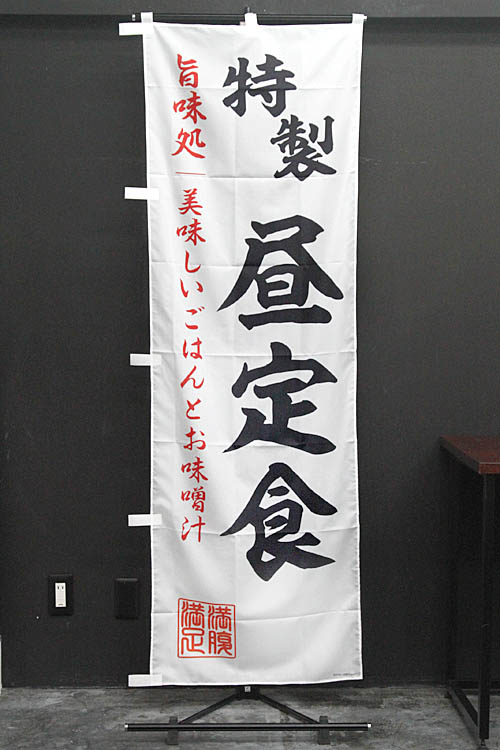 特製
昼定食
旨味処|美味しいごはんとお味噌汁
満腹
満足